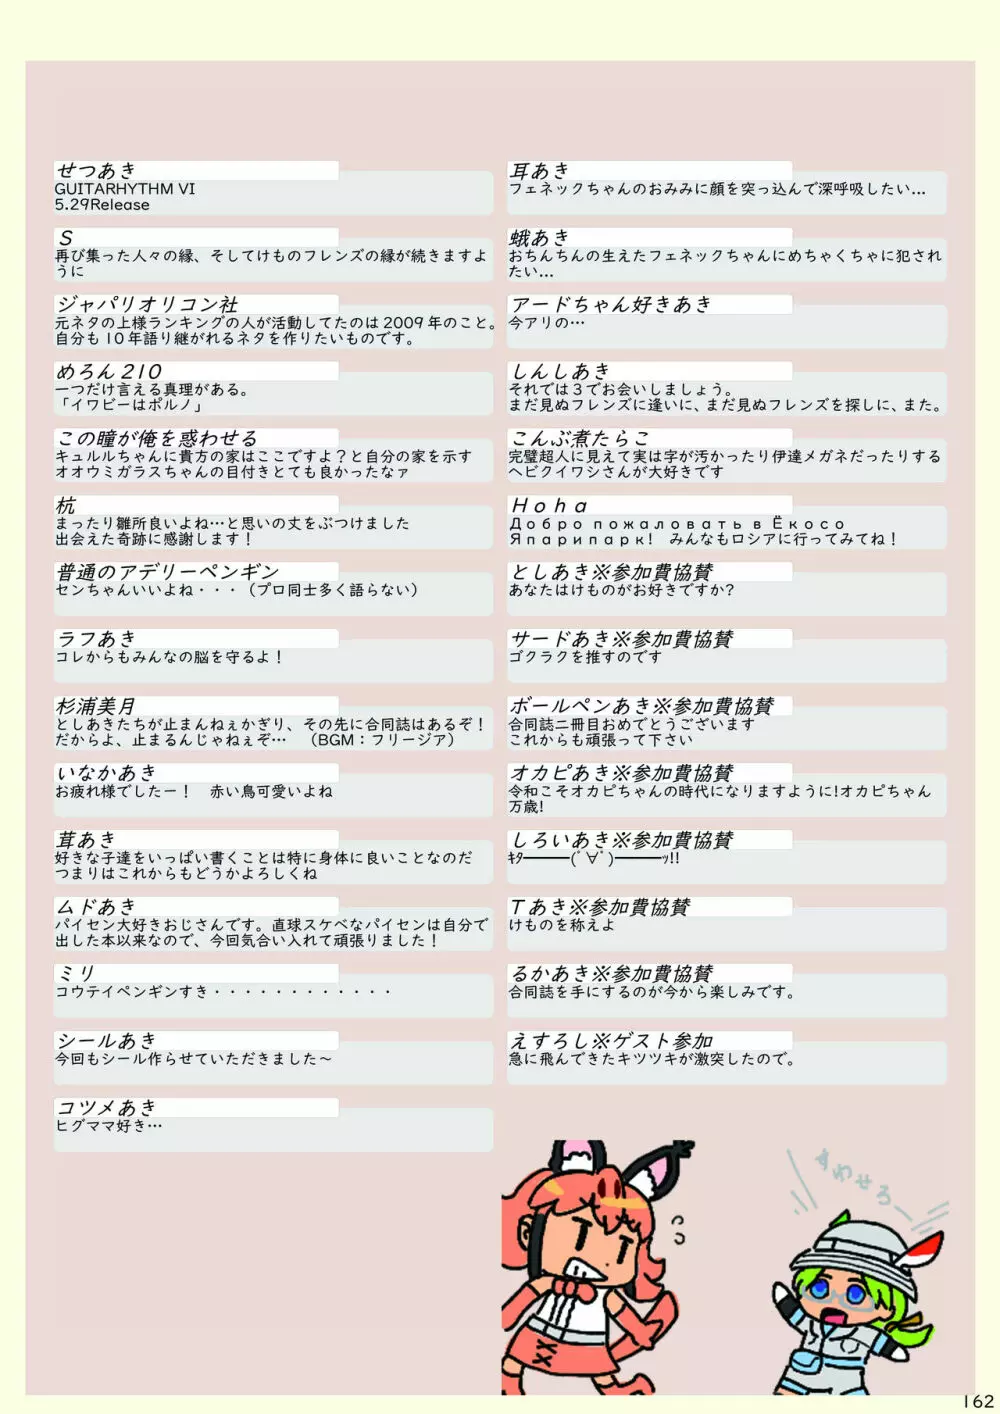 せつあき
GUITARHYTHM VI
5.29Release
S
再び集った人々の縁、そしてけものフレンズの縁が続きますよ
うに
ジャパリオリコン社
元ネタの上様ランキングの人が活動してたのは2009年のこと。
自分も10年語り継がれるネタを作りたいものです。
めろん210
一つだけ言える真理がある。
「イワビーはポルノ」
この瞳が俺を惑わせる
キュルルちゃんに貴方の家はここですよ？と自分の家を示す
オオウミガラスちゃんの目付きとても良かったなァ
杭
まったり雛所良いよね…と思いの丈をぶつけました
出会えた奇跡に感謝します！
普通のアデリーペンギン
センちゃんいいよね・・・（プロ同士多く語らない）
ラフあき
コレからもみんなの脳を守るよ！
杉浦美月
としあきたちが止まんねぇかぎり、その先に合同誌はあるぞ！
だからよ、止まるんじゃねぇぞ…　（BGM：フリージア）
いなかあき
お疲れ様でしたー！　赤い鳥可愛いよね
茸あき
好きな子達をいっぱい書くことは特に身体に良いことなのだ
つまりはこれからもどうかよろしくね
ムドあき
パイセン大好きおじさんです。直球スケベなパイセンは自分で
出した本以来なので、今回気合い入れて頑張りました！
ミリ
コウテイペンギンすき・・・・・・・・・・・・
シールあき
今回もシール作らせていただきました～
コツメあき
ヒグママ好き…
耳あき
フェネックちゃんのおみみに顔を突っ込んで深呼吸したい...
蛾あき
おちんちんの生えたフェネックちゃんにめちゃくちゃに犯され
たい...
アードちゃん好きあき
今アリの…
しんしあき
それでは３でお会いしましょう。
まだ見ぬフレンズに逢いに、まだ見ぬフレンズを探しに、また。
こんぶ煮たらこ
完璧超人に見えて実は字が汚かったり伊達メガネだったりする
ヘビクイワシさんが大好きです
Ｈｏｈａ
Добро пожаловать в Ёкосо
Япарипарк!　みんなもロシアに行ってみてね！
としあき※参加費協賛
あなたはけものがお好きですか？
サードあき※参加費協賛
ゴクラクを推すのです
ボールペンあき※参加費協賛
合同誌二冊目おめでとうございます
これからも頑張って下さい
オカピあき※参加費協賛
令和こそオカピちゃんの時代になりますように!オカピちゃん
万歳!
しろいあき※参加費協賛
ｷﾀ━━━(ﾟ∀ﾟ)━━━ｯ!!
Ｔあき※参加費協賛
けものを称えよ
るかあき※参加費協賛
合同誌を手にするのが今から楽しみです。
えすろし※ゲスト参加
急に飛んできたキツツキが激突したので。
すわせろー
162